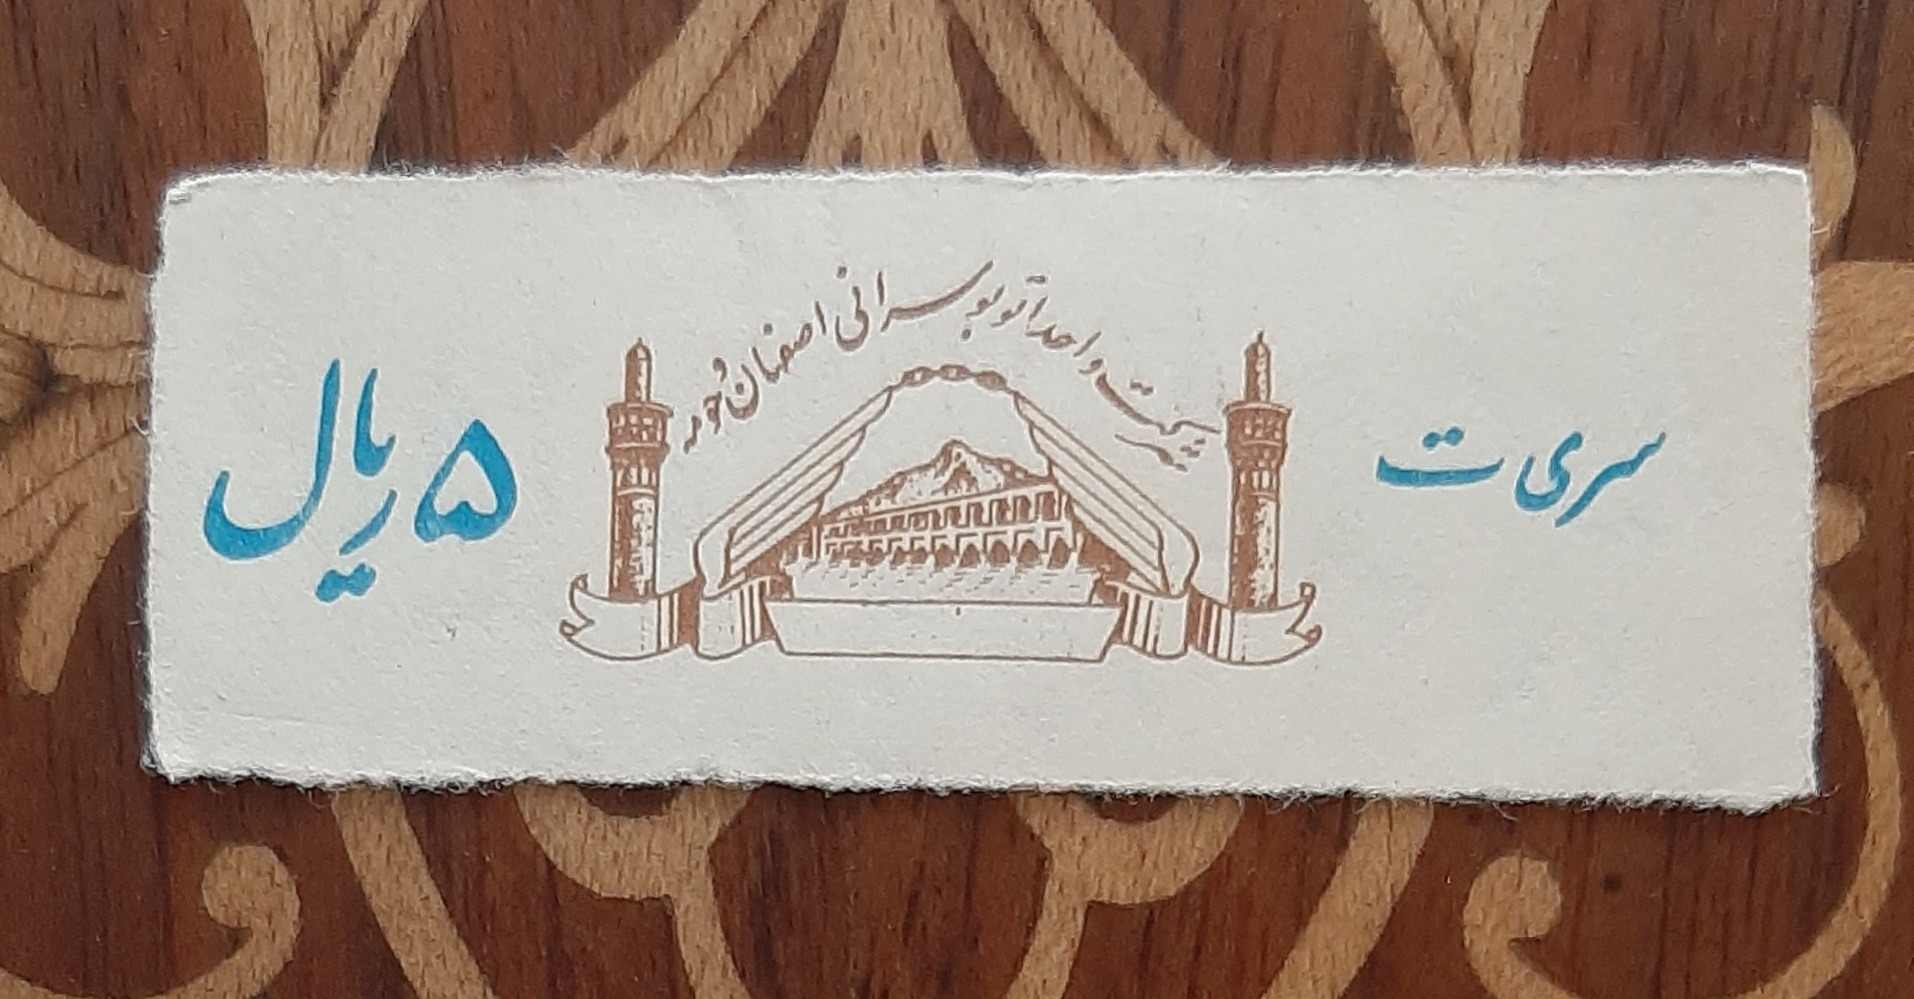 سری ت
بلیت واحد اتوبوسرانی اصفهان و حومه
۵ ریال